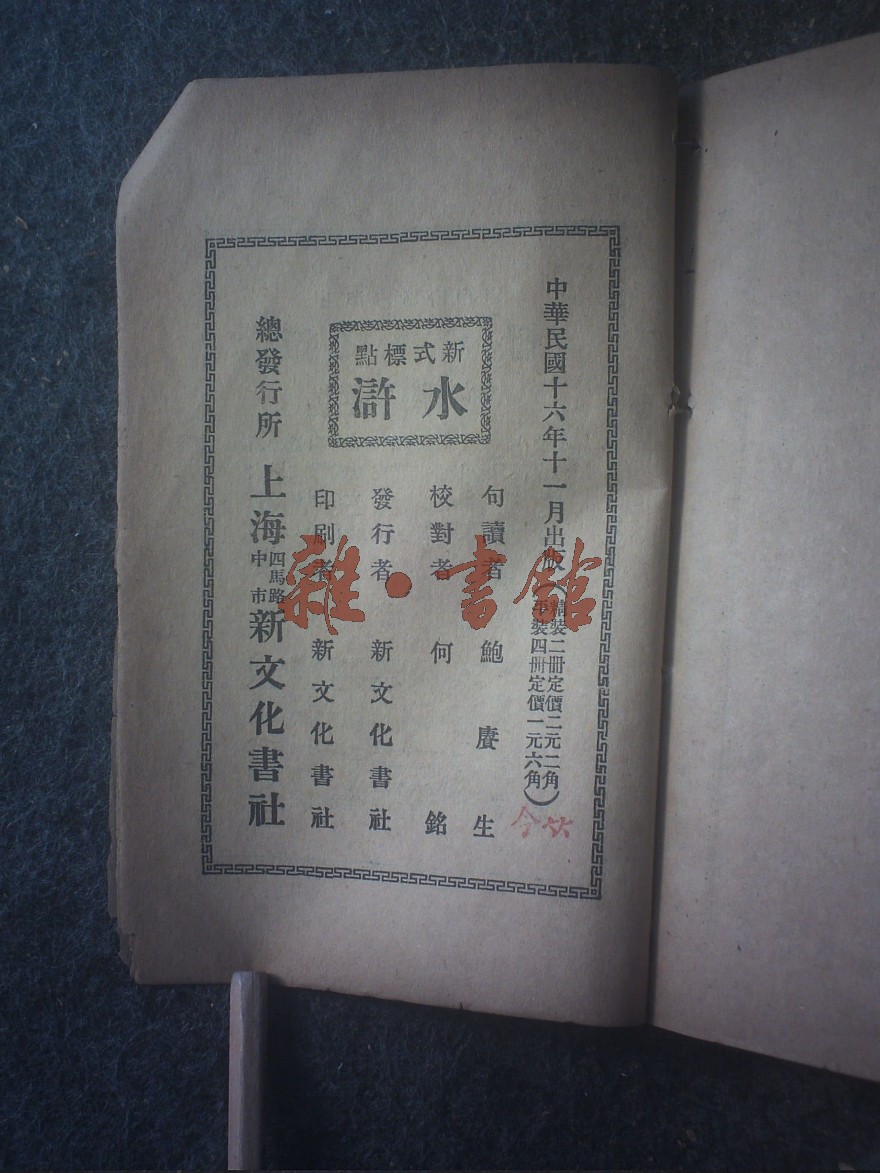 中華民國十六年十一月出版
（精裝二冊定價二元二角
平裝四冊定價一元六角）
新式標點
水滸
句讀者 鮑賡生
校對者 何銘
發行者 新文化書社
印刷者 新文化書社
總發行所 上海四馬路中市新文化書社
雜·書館